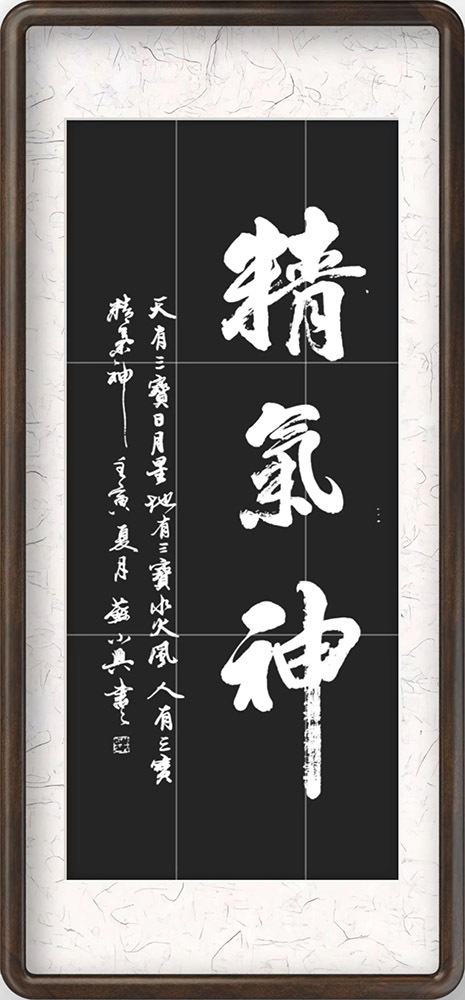 精氣神
天有三寶日月星地有三寶水火風人有三寶
精氣神壬寅夏月蘇小兵書